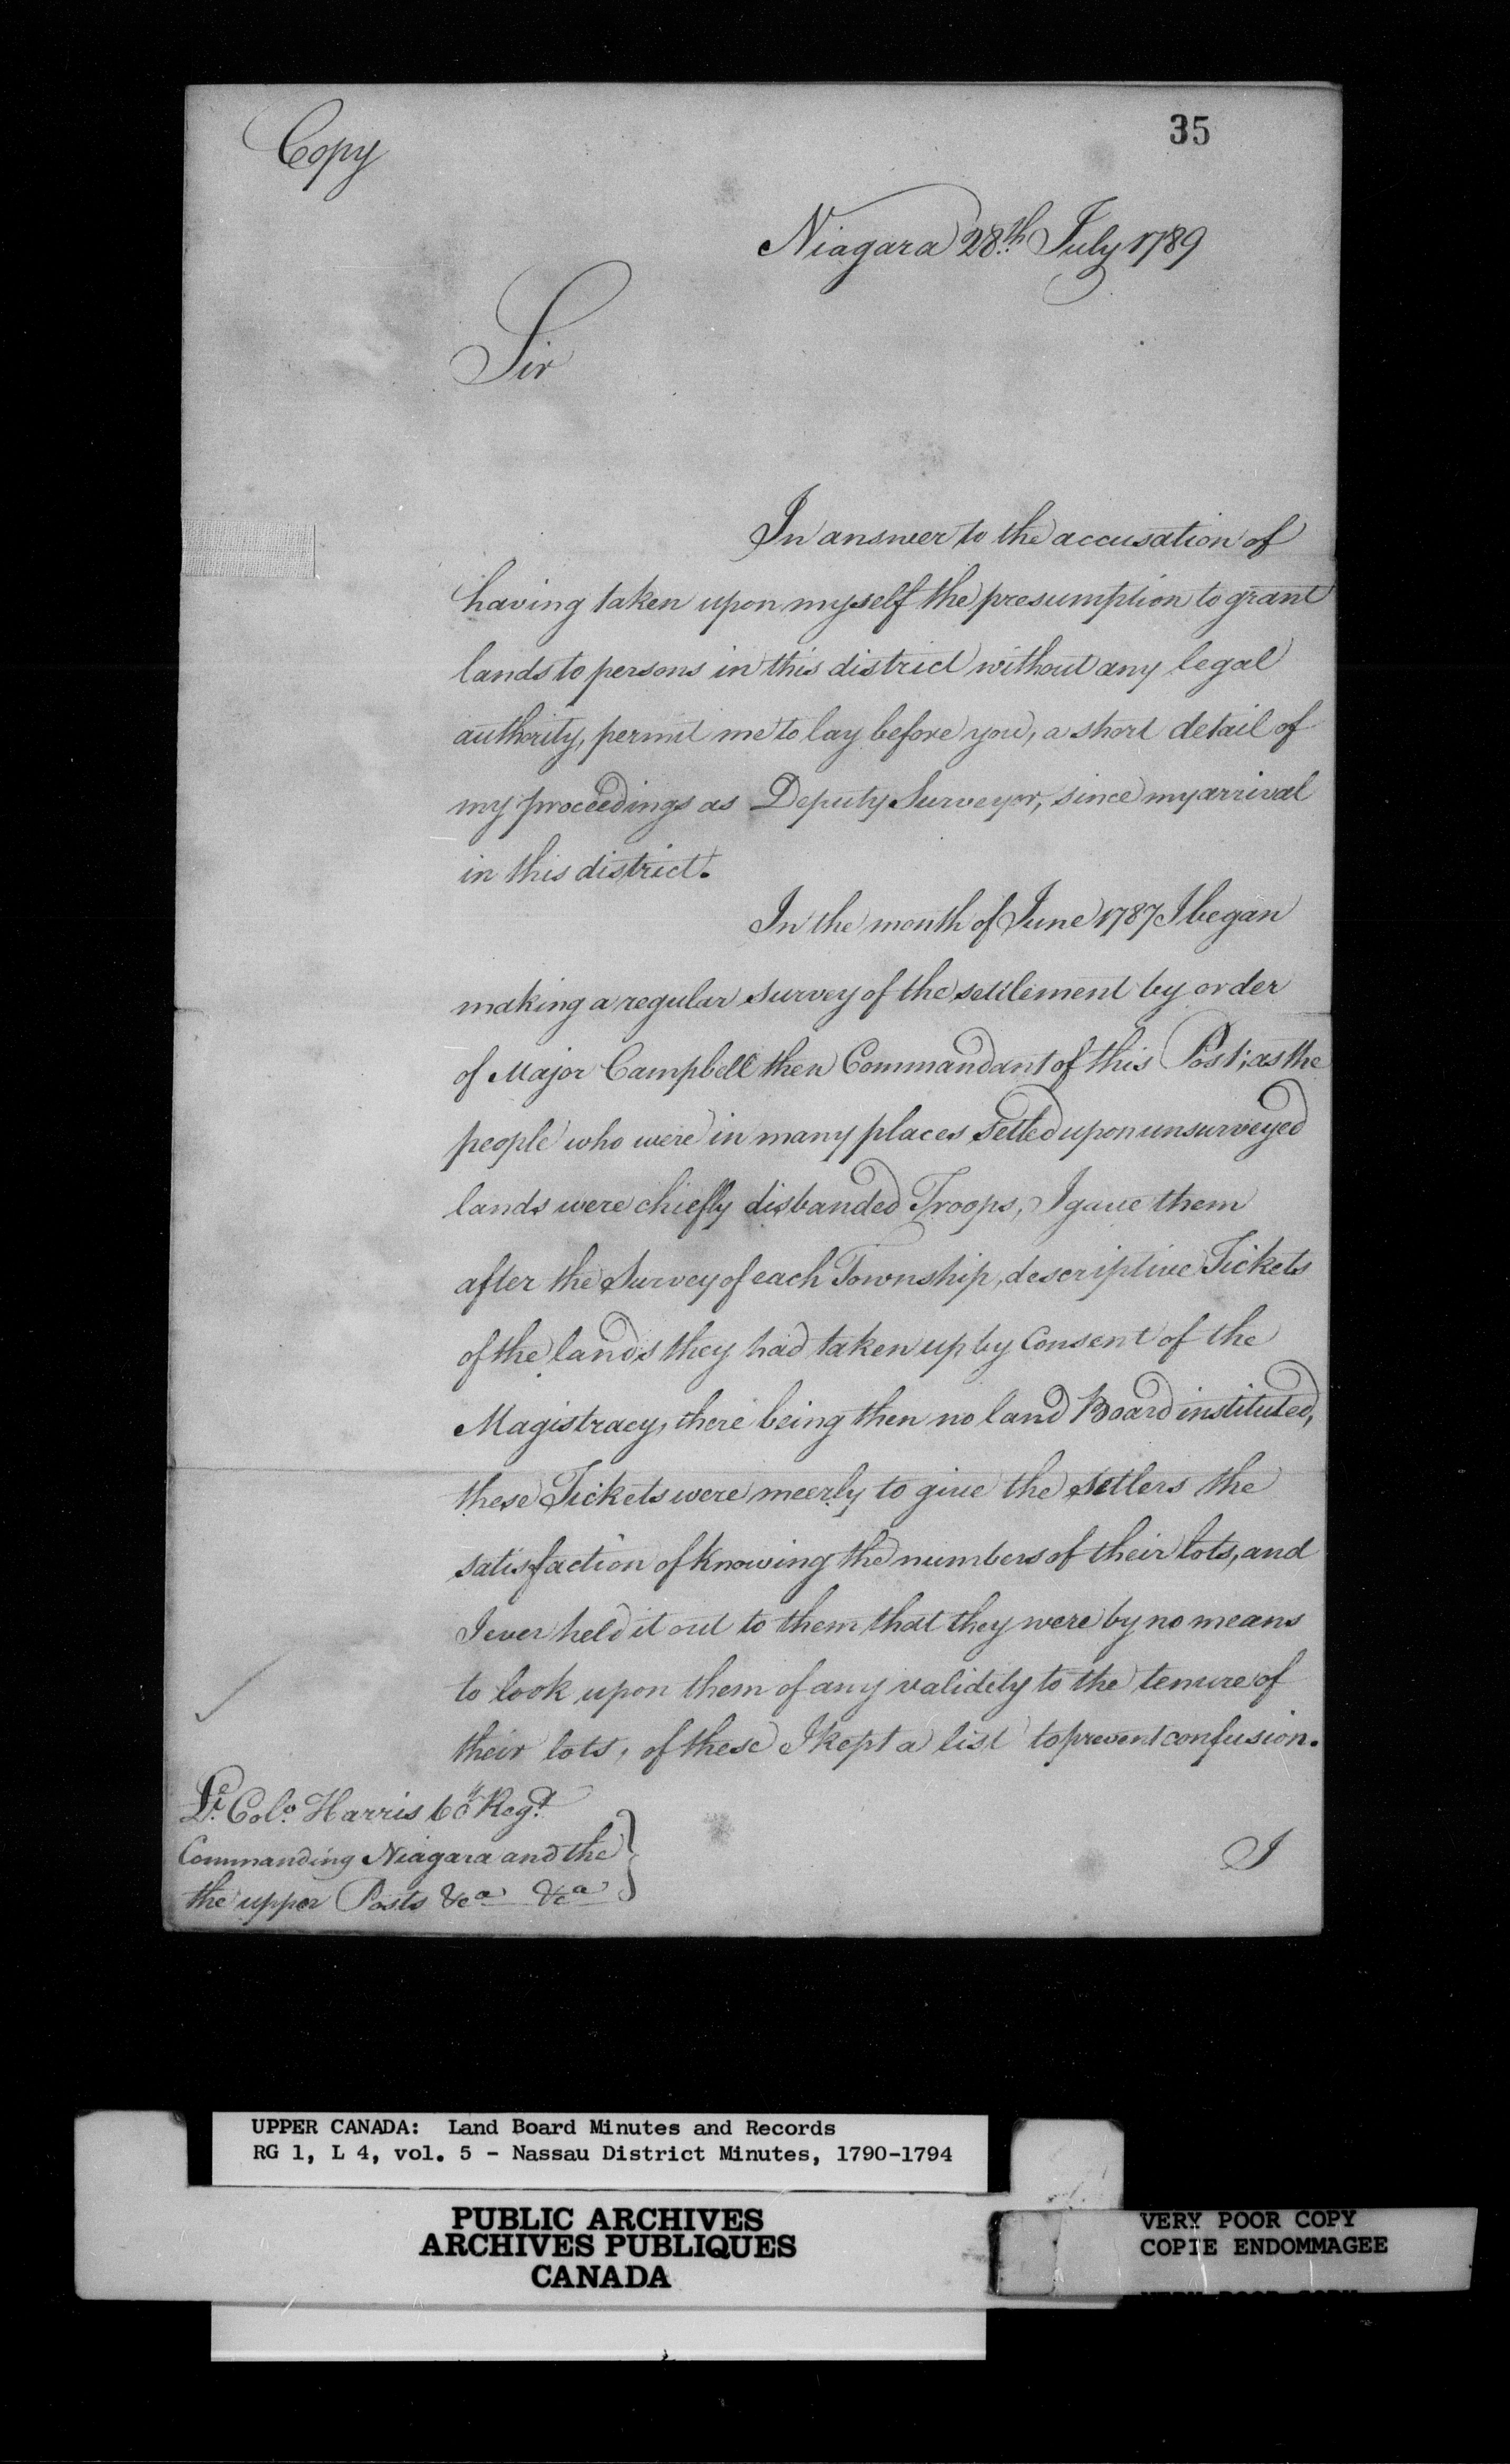 Copy
35
Niagara 28th July 1789
Sir
In answer to the accusation of
having taken upon myself the presumption to grant
lands to persons in this district without any legal
authority, permit me to lay before you, a short detail of
my proceedings as Deputy Surveyor, since my arrival
in this district.
In the month of June 1787 I began
making a regular survey of the settlement by order
of Major Campbell then Commandant of this Post; as the
people who were in many places setled upon unsurveyed
lands were chiefly disbanded Troops, I gave them
after the Survey of each Township, descriptive Tickets
of the lands they had taken up by Consent of the
Magistracy, there being then no land Board instituted,
these Tickets were meerly to give the setlers the
satisfaction of knowing the numbers of their lots, and
I ever held it out to them that they were by no means
to look upon them of any validity to the tenure of
their lots, of these I kept a list to prevent confusion.
Lt. Colo. Harris 60th Regt.
Commanding Niagara and the
the upper Posts &ca &ca
I
UPPER CANADA: Land Board Minutes and Records
RG 1, L 4, vol. 5 - Nassau District Minutes, 1790-1794
PUBLIC ARCHIVES
ARCHIVES PUBLIQUES
CANADA
VERY POOR COPY
COPIE ENDOMMAGEE